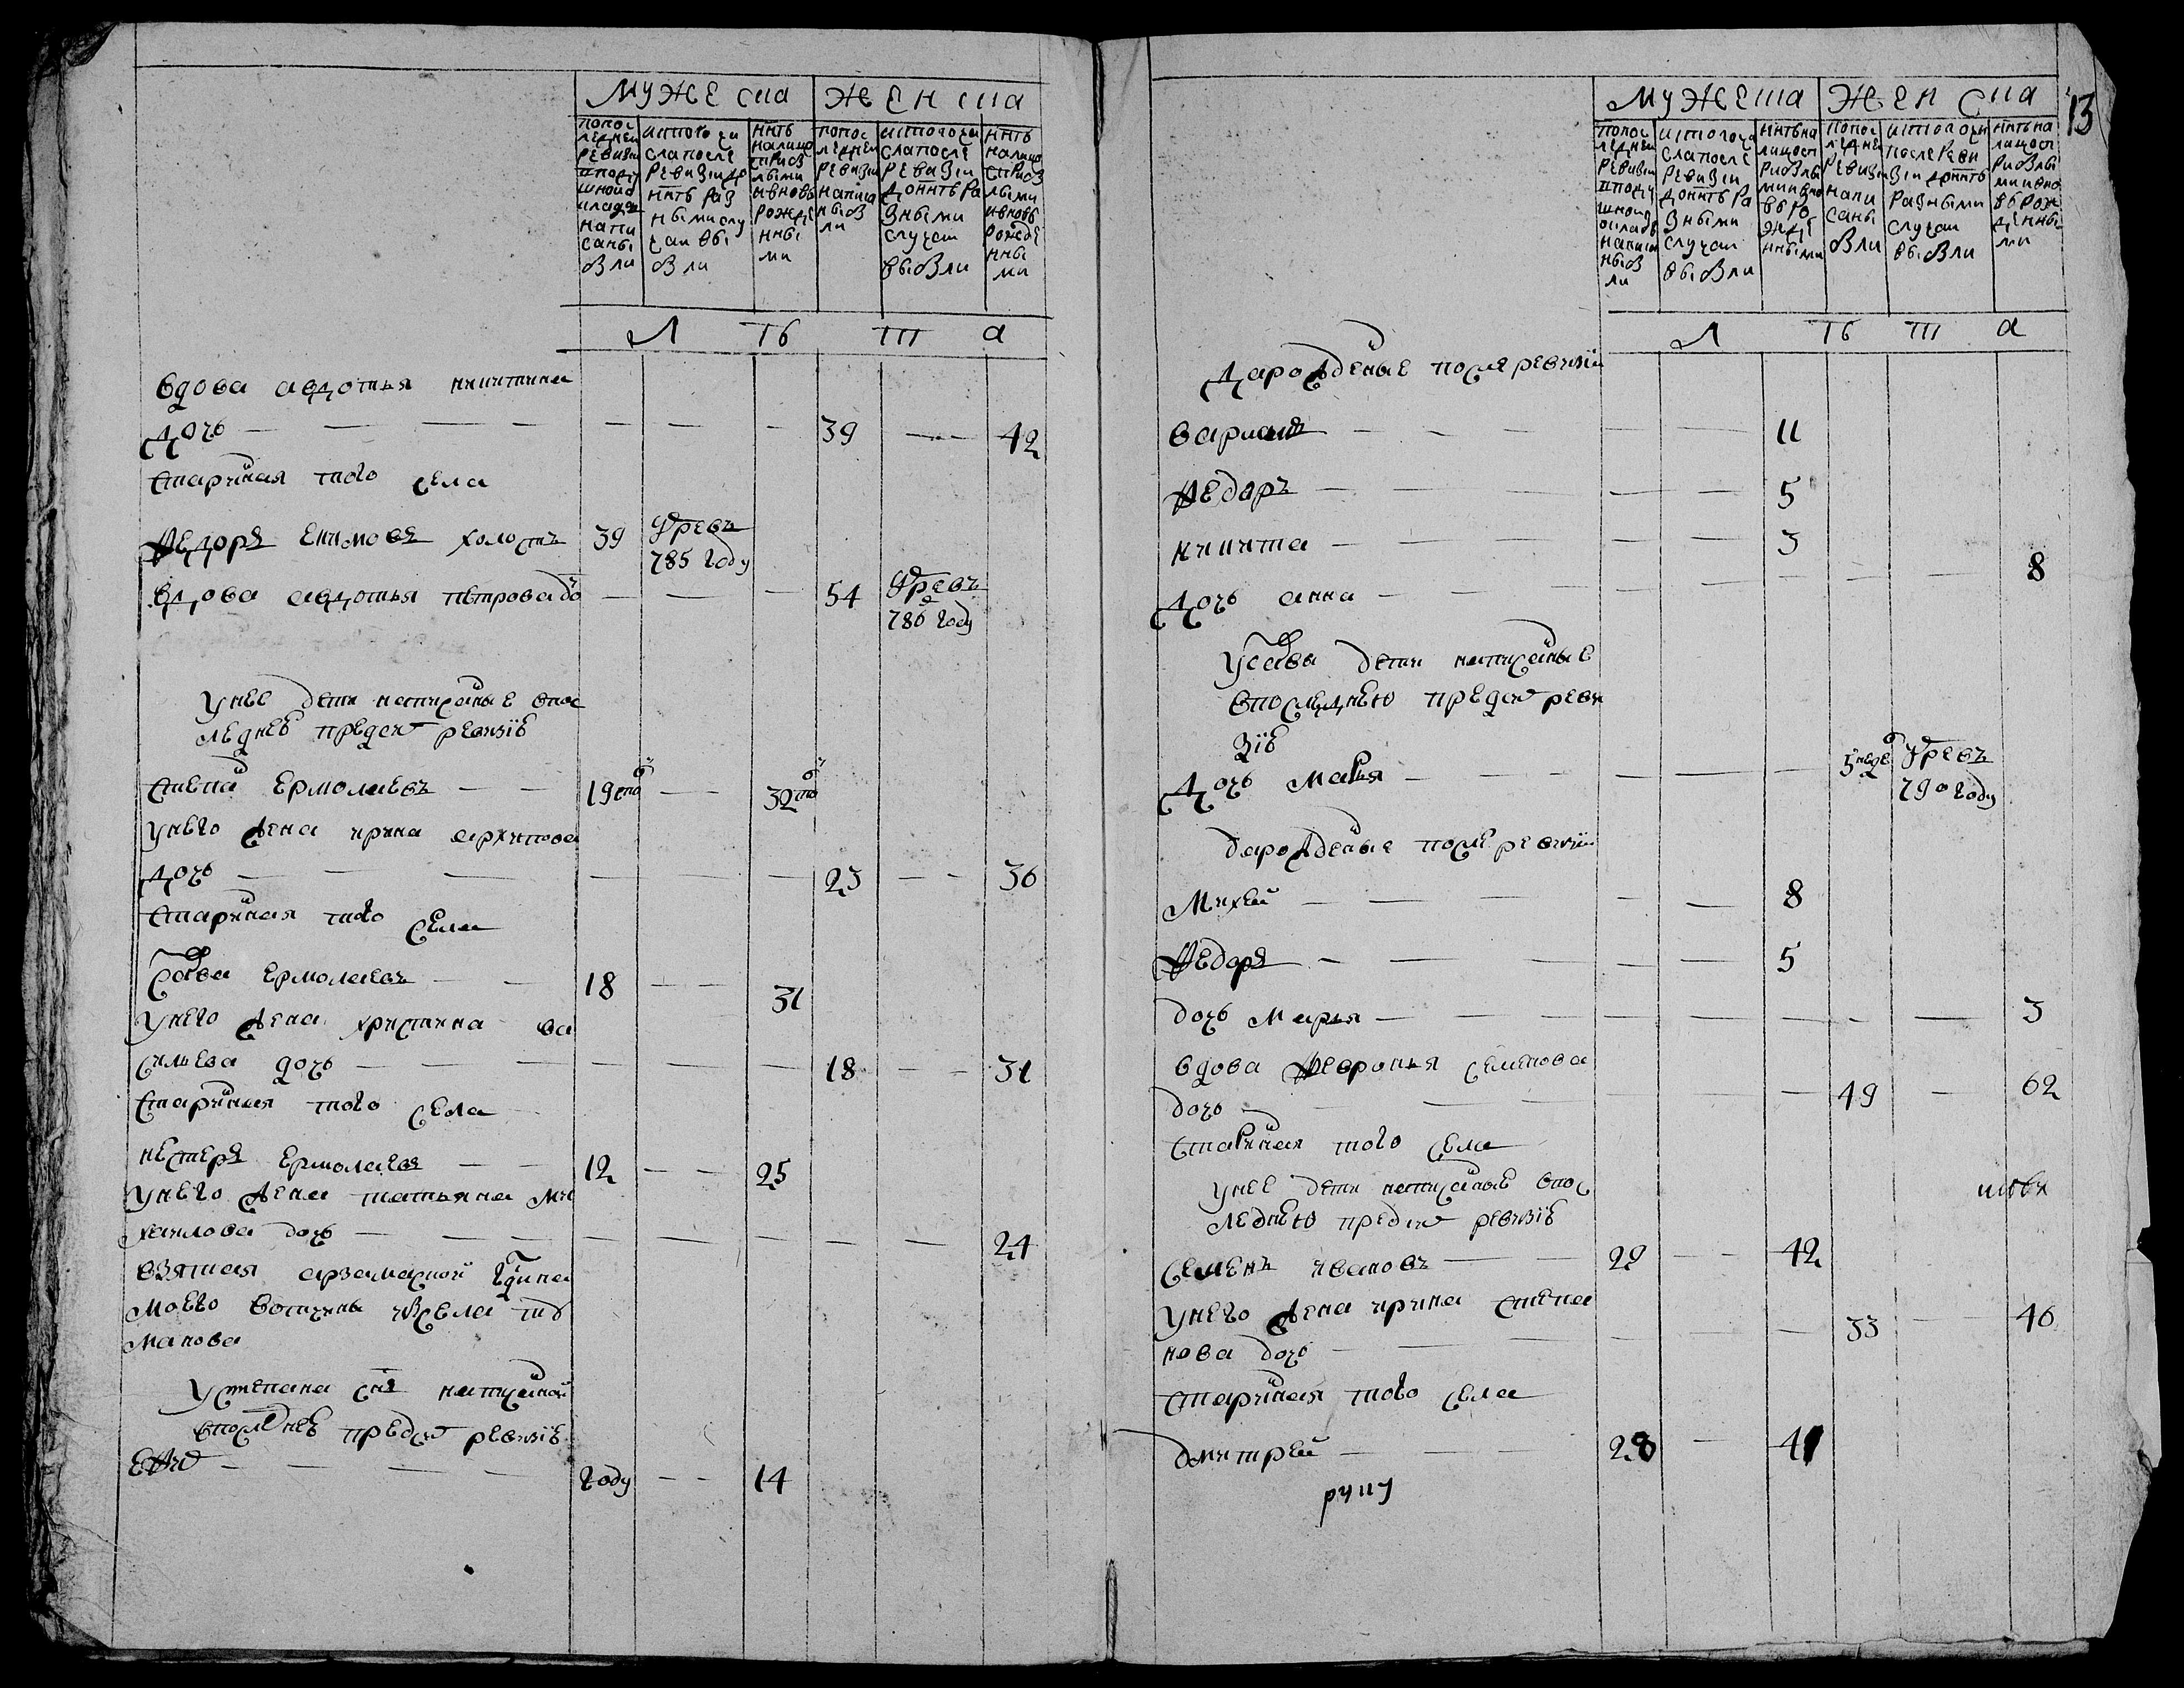 Мужеска Женска
попос леднеи ревизи вподу шнои окладъ напи саны были
истого чи сла после ревизи до ннть раз ными слу чаи вы были
ннть налицо сприб лыми ивновь рожде нны ми
попос леднеи ревизи написа ны бы ли
истого чи сла после ревизи до ннть ра зными случаи выбыли
ннть налицо сприб лыми ивновь рожде нны ми
Л Ѣ Т А
вдова авдотья никитина
дочь — — — — — — — 39 — — 42
старинная того села
Ѳедоръ екимовъ холостъ 39 Умре въ 785 году
вдова авдотья петрова до — — — 54 Умре въ 786 году
Унее дети написаные впос
леднеѣ пред сим ревизиѣ
степан Ермолаевъ — — 19 — 32
Унего жена ирина архипова
дочь — — — — — — 23 — — 36
старинная того села
Савва Ермолаевъ — — 18 — — 31
Унего жена христина ва
сильева дочь — — — — — — 18 — — 31
старинная того села
нестеръ Ермолаевъ — — 12 — — 25
Унего жена татьяна ми
хаилова дочь — — — — — — — — 24
взятая арзамаской
моего вотчины изсела
манова
Устепана снъ написаной
впоследнеѣ предсим ревизиѣ
— — — — году — — 14
13
Мужеска Женска
попос леднеи ревизи вподу шнои окладъ написа ны бы ли
истого чи сла после ревизи до ннть ра зными случаи выбыли
ннть на лицосп рибылы ми ивно вь ро жде нными
попос леднеи ревизи напи саны были
истого чи после реви зи до ннть разными случаи выбыли
ннть на лицосп рибылы ми ивно вь рож денны ми
Л Ѣ Т А
Да рожденые после ревизии
— — — — — 11
Ѳедоръ — — — — — 5
никита — — — — — 3
дочь анна — — — — — — — 8
Усавы дети написаные
впоследнею предсим реви
зиѣ
дочь Марья — — — — — — 5 неде Умре въ 790 году
да рожденые после ревизии
Михей — — — — — 8
Ѳедоръ — — — — — 5
дочь Марья — — — — — — — — 3
вдова Ѳевронья семенова
дочь — — — — — — 49 — 62
старинная того села
Унее дети написаные впос
леднею предсим ревизиѣ
семенъ ивановъ — — 29 — — 42
Унего жена ирина степа
нова дочь — — — — — 33 — — 46
старинная того села
дмитрей — — — 28 — 41
руку